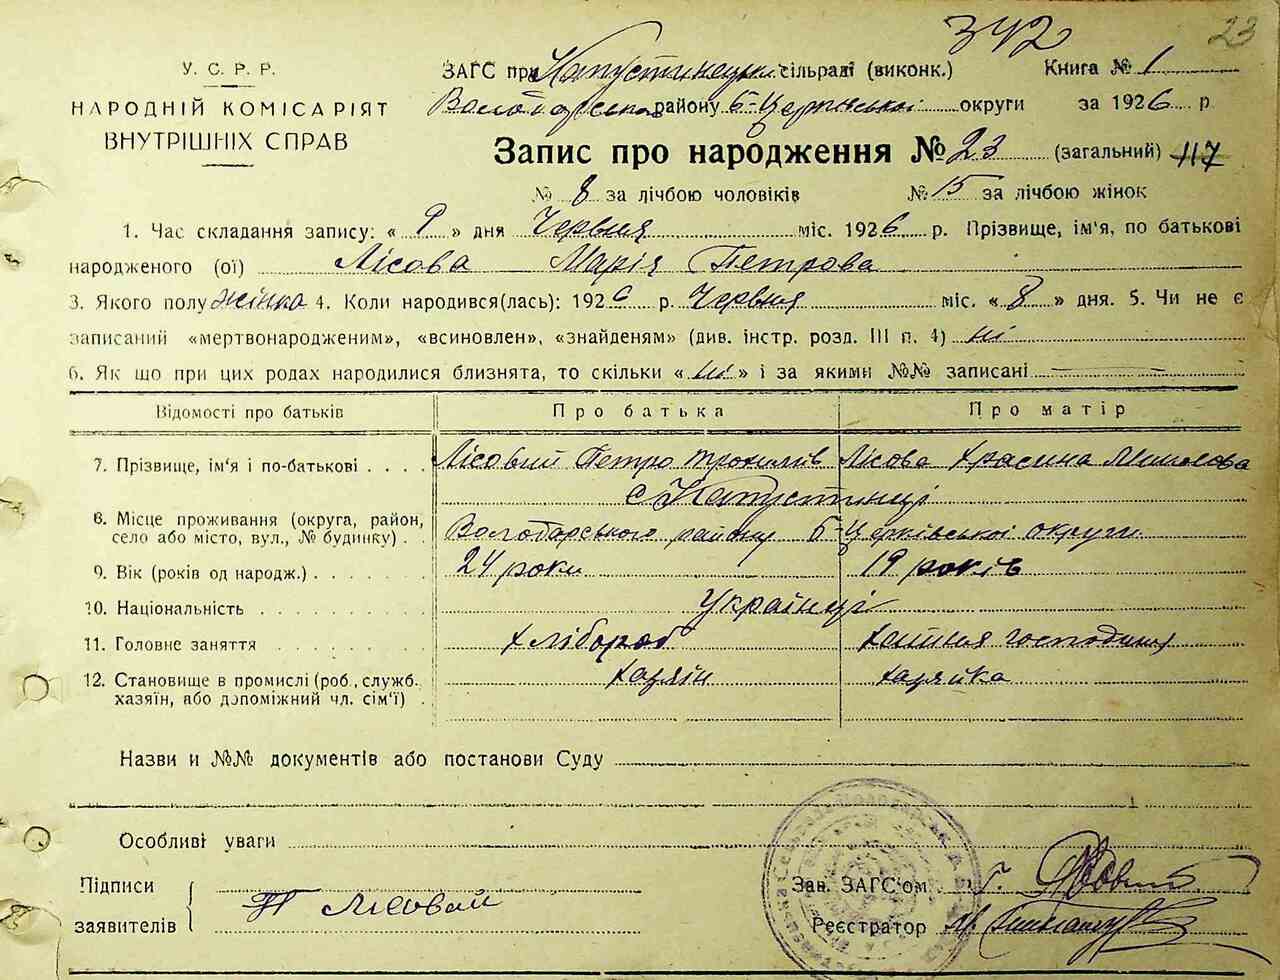 342
23
У. С. Р. Р.
НАРОДНІЙ КОМІСАРІЯТ
ВНУТРІШНІХ СПРАВ
ЗАГС при Капустинецьк. сільраді (виконк.) Книга № 1
Володарськ району Б-Церківської округи за 1926 р.
Запис про народження № 23 (загальний) 117
№ 8 за лічбою чоловіків № 15 за лічбою жінок
1. Час складання запису: « 9 » дня Червня міс. 1926 р. Прізвище, ім'я, по батькові
народженого (ої) Лісова Марія Петрова
3. Якого полу жінка 4. Коли народився(лась): 1926 р. Червня міс. « 8 » дня. 5. Чи не є
записаний «мертвонародженим», «всиновлен», «знайденям» (див. інстр. розд. III п. 4) ні
6. Як що при цих родах народилися близнята, то скільки « ні » і за якими №№ записані
Відомості про батьків Про батька Про матір
7. Прізвище, ім'я і по-батькові . . . . Лісовий Петро Трохимів Лісова Красина
с Капустинці
8. Місце проживання (округа, район,
село або місто, вул., № будинку) . . Володарського району Б-Церківської округи
9. Вік (років од народж.) . . . . . . . 24 роки 19 років
10. Національність . . . . . . . . . . Українці
11. Головне заняття . . . . . . . . Хлібороб хатня господиня
12. Становище в промислі (роб., служб.
хазяїн, або допоміжний чл. сім'ї) . хазяїн хазяйка
Назви и №№ документів або постанови Суду
Особливі уваги
Підписи
заявителів
П Лісовай
Зав. ЗАГС'ом
Реєстратор